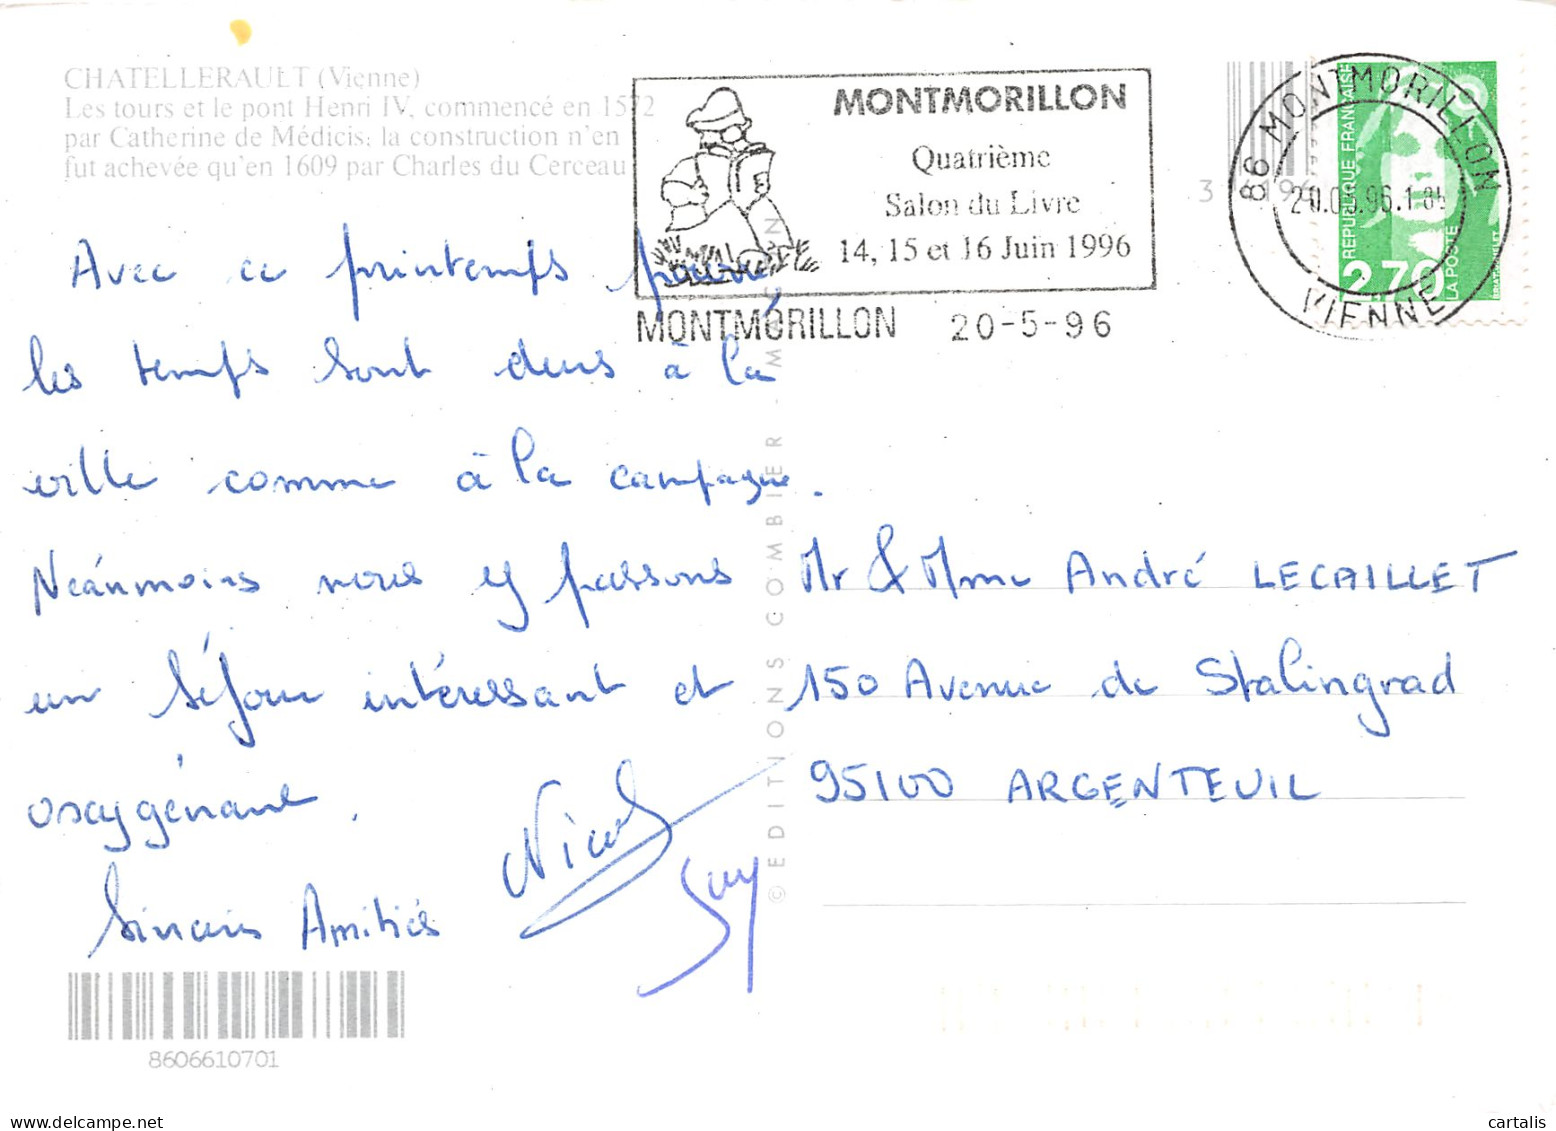 CHATELLERAULT (Vienne)
Les tours et le pont Henri IV, commencé en 1572
par Catherine de Médicis: la construction n'en
fut achevée qu'en 1609 par Charles du Cerceau
MONTMORILLON
Quatrième
Salon du Livre
14, 15 et 16 Juin 1996
MONTMORILLON 20-5-96
86 MONTMORILLON
VIENNE
RÉPUBLIQUE FRANÇAISE
2,70
LA POSTE
Avec ce printemps pourri
les temps sont durs à la
ville comme à la campagne.
Néanmoins nous y passons
un séjour intéressant et
oxygénant.
Sincères Amitiés
Nicole
Guy
Mr & Mme André LECAILLET
150 Avenue de Stalingrad
95100 ARGENTEUIL
© EDITIONS COMBIER - MACON
8606610701
cartalis